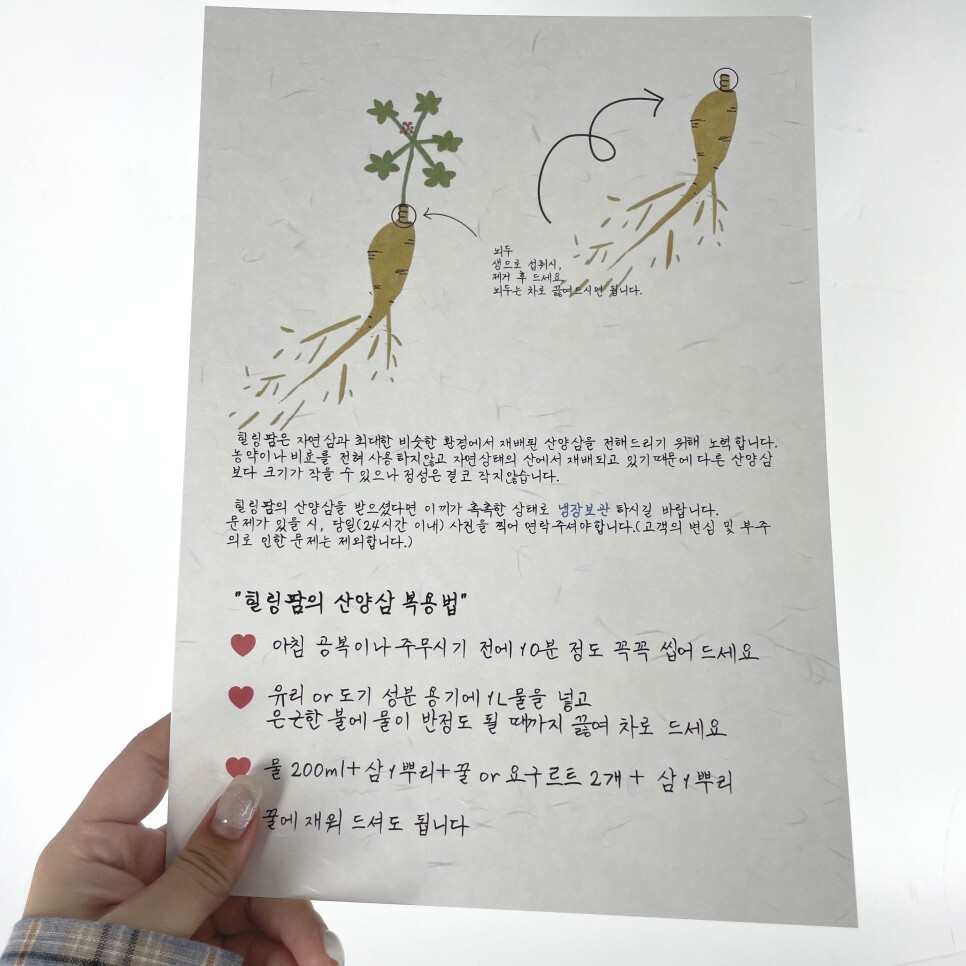 뇌두
생으로 섭취시,
제거 후 드세요
뇌두는 차로 끓여드시면 됩니다.
힐링팜은 자연삼과 최대한 비슷한 환경에서 재배된 산양삼을 전해드리기 위해 노력합니다.
농약이나 비료를 전혀 사용하지않고 자연상태의 산에서 재배되고 있기때문에 다른 산양삼
보다 크기가 작을 수 있으나 정성은 결코 작지않습니다.
힐링팜의 산양삼을 받으셨다면 이끼가 촉촉한 상태로 냉장보관 하시길 바랍니다.
문제가 있을 시, 당일(24시간 이내) 사진을 찍어 연락주셔야합니다.(고객의 변심 및 부주
의로 인한 문제는 제외합니다.)
"힐링팜의 산양삼 복용법"
아침 공복이나 주무시기 전에 10분 정도 꼭꼭 씹어 드세요
유리 or 도기 성분 용기에 1L물을 넣고
은근한 불에 물이 반정도 될 때까지 끓여 차로 드세요
물 200ml+삼 1뿌리+꿀 or 요구르트 2개 + 삼 1뿌리
꿀에 재워 드셔도 됩니다